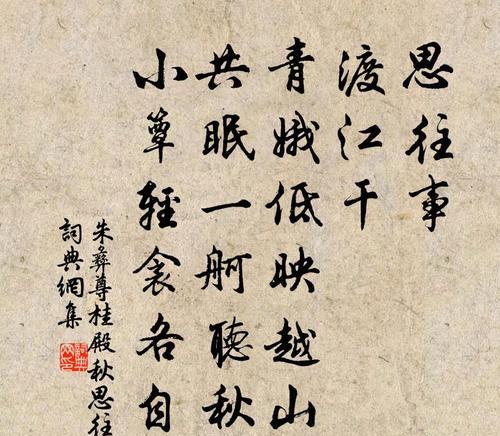 思往事
渡江干
青娥低映越山
共眠一舸聽秋
小簟輕衾各自
朱彝尊桂殿秋思往
詞典網集